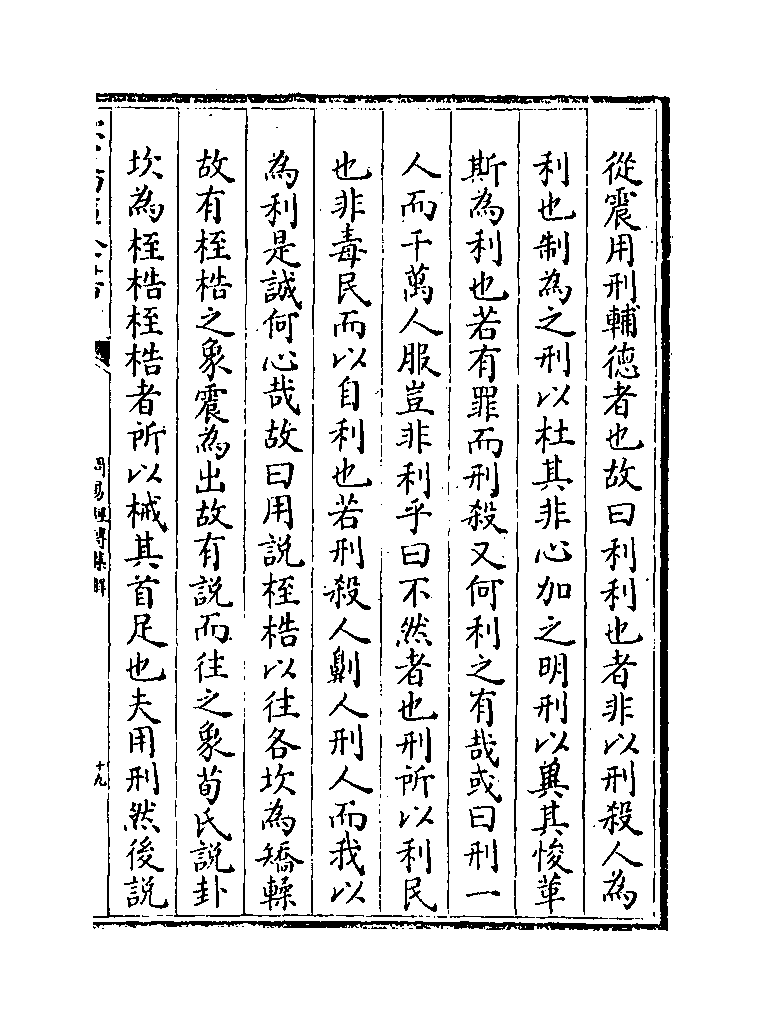 從震用刑輔徳者也故曰利利也者非以刑殺人為
利也制為之刑以杜其非心加之明刑以兾其悛革
斯為利也若有罪而刑殺又何利之有哉或曰刑一
人而千萬人服豈非利乎曰不然者也刑所以利民
也非毒民而以自利也若刑殺人劓人刑人而我以
為利是誠何心哉故曰用説桎梏以往各坎為矯輮
故有桎梏之象震為出故有説而往之象荀氏説卦
坎為桎梏桎梏者所以械其首足也夫用刑然後説
周易經傳集解
十九